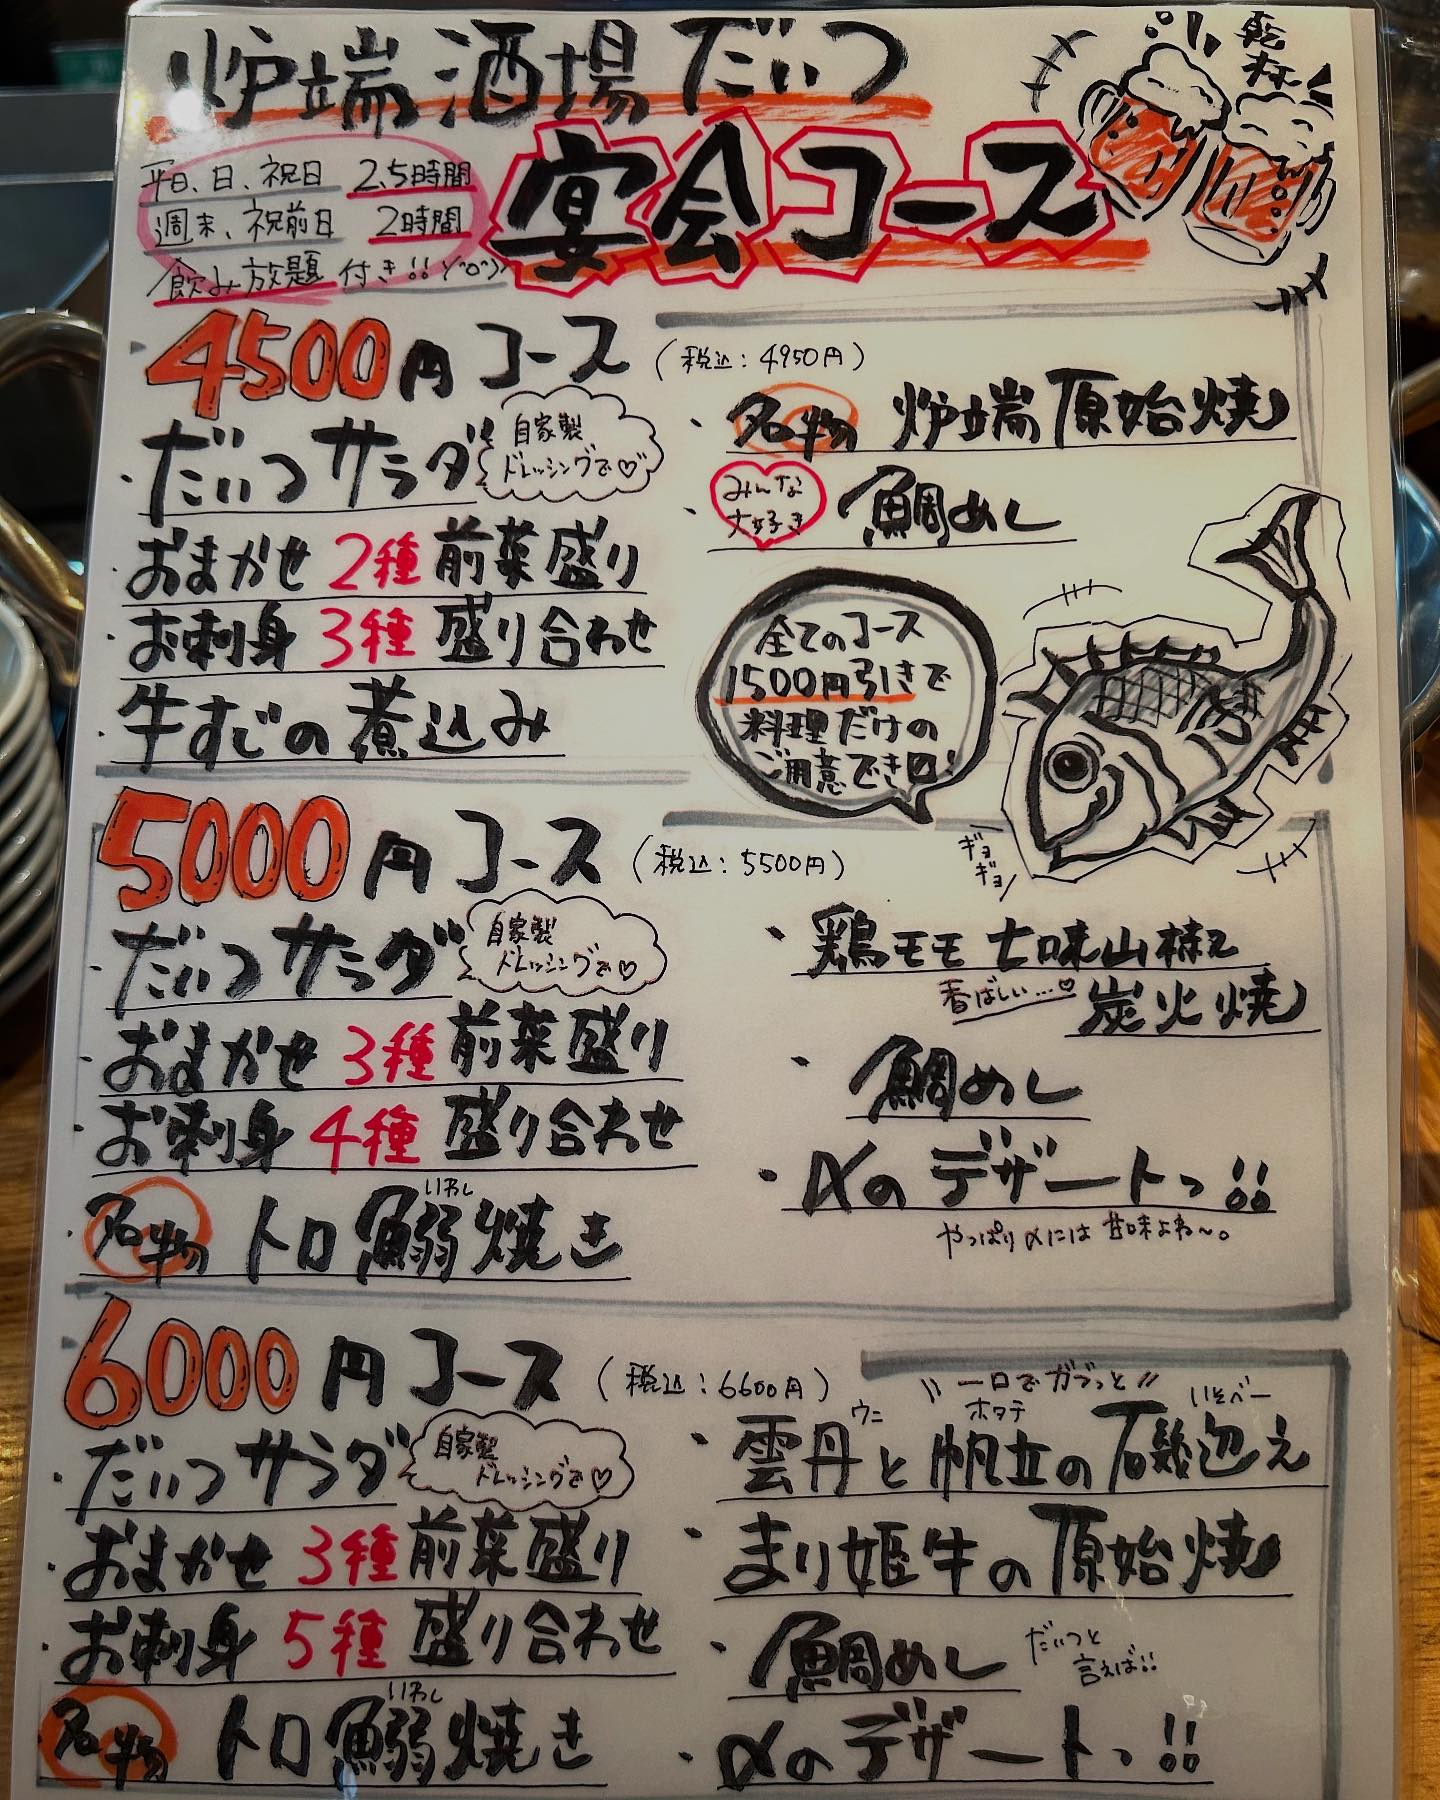 炉端酒場だいつ
乾杯
宴会コース
平日、日、祝日 2.5時間
週末、祝前日 2時間
飲み放題付き!!
4500円コース (税込:4950円)
・だいつサラダ
自家製
ドレッシングで♡
・おまかせ2種前菜盛り
・お刺身3種盛り合わせ
・牛すじの煮込み
・名物 炉端原始焼
・みんな
大好き
鯛めし
全てのコース
1500円引きで
料理だけの
ご用意でき〼!
ギョ
ギョ
5000円コース (税込:5500円)
・だいつサラダ
自家製
ドレッシングで♡
・おまかせ3種前菜盛り
・お刺身4種盛り合わせ
いわし
・名物 トロ鰯焼き
・鶏モモ七味山椒
香ばしい…♡
炭火焼
・鯛めし
・〆のデザートっ!!
やっぱり〆には甘味よね〜。
6000円コース (税込:6600円)
・だいつサラダ
自家製
ドレッシングで♡
・おまかせ3種前菜盛り
・お刺身5種盛り合わせ
いわし
・名物 トロ鰯焼き
\\一口でガブっと//
ウニ ホタテ いそべー
・雲丹と帆立の磯辺え
・まり姫牛の原始焼
・鯛めし
だいつと
言えば!!
・〆のデザートっ!!